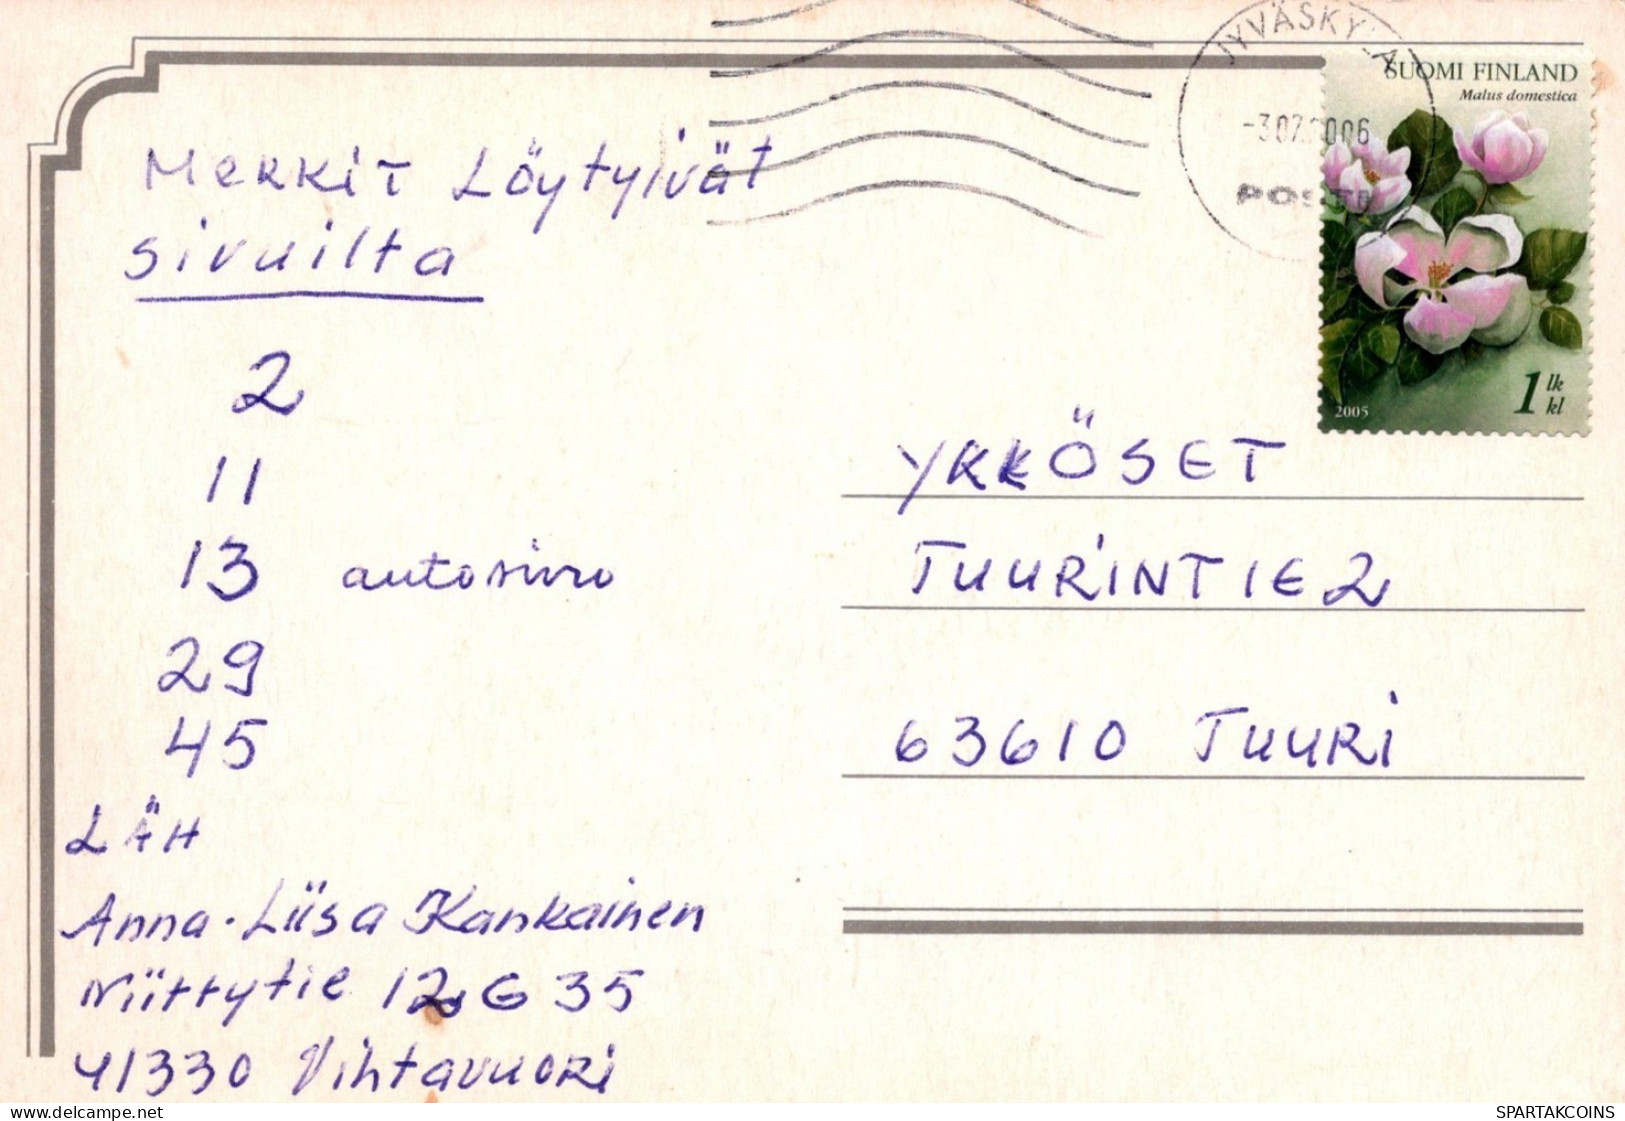 JYVÄSKYLÄ
-3.07.2006
POSTI
SUOMI FINLAND
Malus domestica
1 lk
kl
2005
Merkit Löytyivät
sivuilta
2
11
13 autosivu
29
45
LÄH
Anna-Liisa Kankainen
Niittytie 12 G 35
41330 Vihtavuori
YKKÖSET
TUURINTIE 2
63610 TUURI
delcampe.net
SPARTAKCOINS